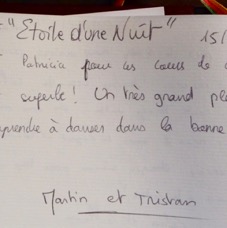 "Etoile d'une Nuit" 15/
Patricia pour les cours de
superbe! Un très grand
prendre à danser dans la bonne
Martin et Tristan